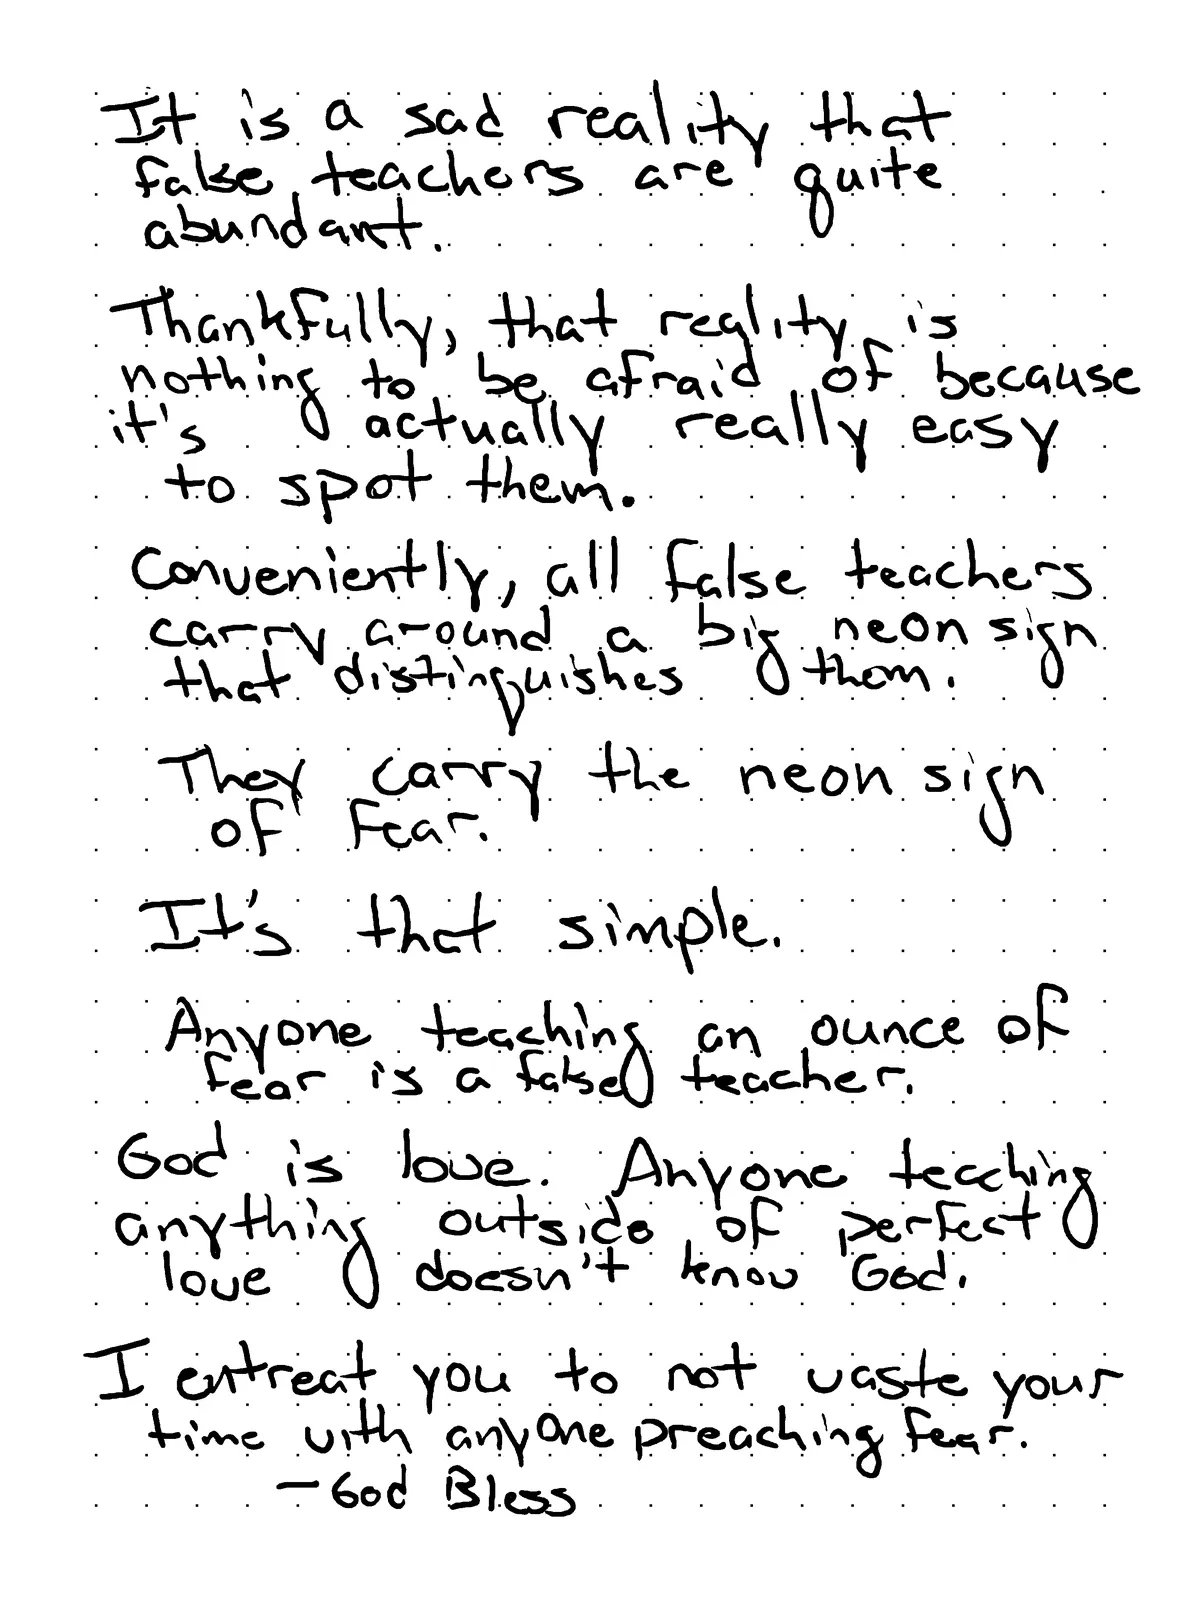 It is a sad reality that
false teachers are quite
abundant.
Thankfully, that reality is
nothing to be afraid of because
it's actually really easy
to spot them.
Conveniently, all false teachers
carry around a big neon sign
that distinguishes them.
They carry the neon sign
of fear.
It's that simple.
Anyone teaching an ounce of
fear is a false teacher.
God is love. Anyone teaching
anything outside of perfect
love doesn't know God.
I entreat you to not waste your
time with anyone preaching fear.
- God Bless